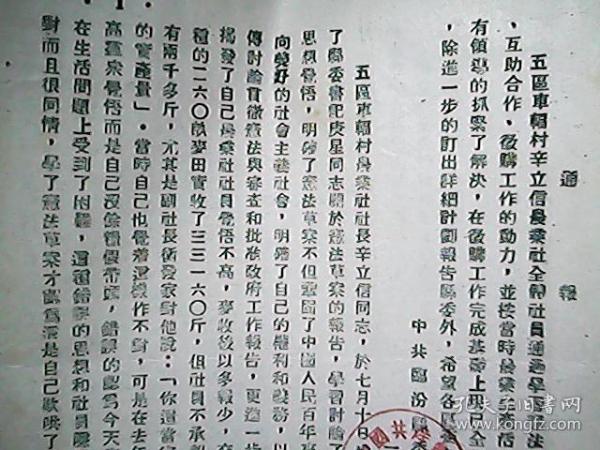 通報
五區車輻村辛立信農業社全體社員通過學習憲法
、互助合作、徵購工作的動力，並按當時農業生活
有領導的抓緊了解決，在徵購工作完成基礎上現已全
，除進一步的訂出詳細計劃報告縣委外，希望各區委
中共臨汾縣委
五區車輻村農業社社長辛立信同志，於七月十日
了縣委書記庚星同志關於憲法草案的報告，學習討論了
思想覺悟，明確了憲法草案不但鞏固了中國人民百年來
向美好的社會主義社會，明確了自己的權利和義務，以
傳討論貫徹憲法與審查和批准政府工作報告，更進一步
揭發了自己農業社社員覺悟不高，麥收後以多報少，在
種的二六〇畝麥田實收了三三一六〇斤，但社員不承認
有兩千多斤，尤其是副社長衛愛家對他說：「你還當
的實產量」。當時自己也覺着這樣作不對，可是在去
高黨衆覺悟而是自己沒像價假帶頭，錯誤的認爲今天
在生活問題上受到了困難，這種錯誤的思想和社員
對而且很同情，學了憲法草案才認爲深是自己欺哄了
中國共產
孔夫子旧书网